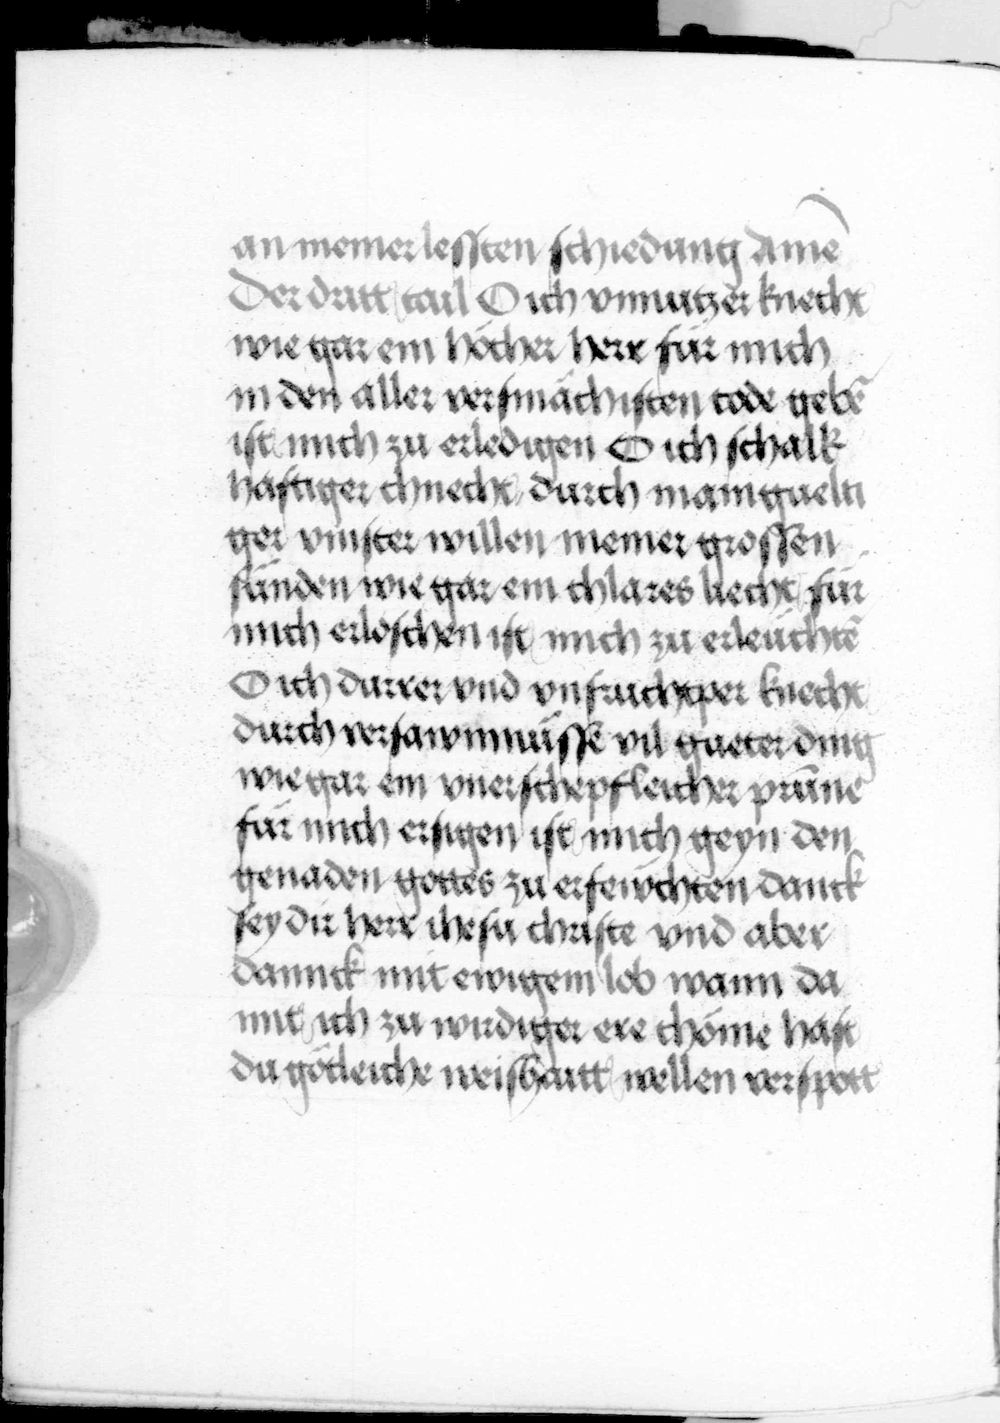 an meiner lessten schiedung Amē
Der dritt tail O ich vnnutzer knecht
wie gar ein höcher herr für mich
in den aller versmächisten tode gebē
ist mich zu erledigen O ich schalk
haftiger chnecht durch maniguelti
ger vinster willen meiner grossen
sünden wie gar ein chlares liecht für
mich erloschen ist mich zu erleuchtē
O ich durrer vnd vnfruchtper knecht
durch versawmnüssē vil gueter ding
wie gar ein vnerschepfleicher prunē
für mich ersigen ist mich geyn den
genaden gottes zu erfewchten danck
sey dir herr ihesu christe vnd aber
dannck mit ewigem lob wann da
mit ich zu wirdiger ere chöme hast
du götleiche weishaitt wellen verspott